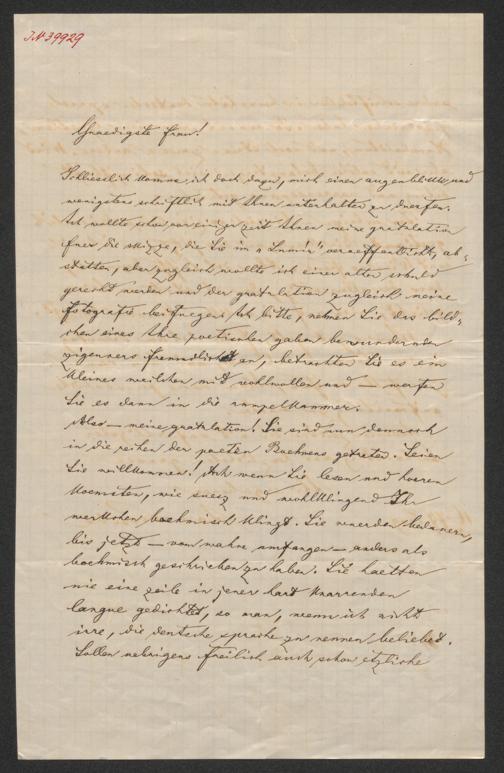 J.N 39929
Gnaedigste Frau!
Schliesslich komme ich doch dazu, mich einen augenblick und
wenigstens schriftlich mit Ihnen unterhalten zu duerfen.
Ich wollte schon vor einiger zeit Ihnen meine gratulation
fuer die skizze, die Sie im „Lumír" veroeffentlicht, ab-
statten, aber zugleich wollte ich einer alten schuld
gerecht werden und der gratulation zugleich meine
fotografie beifuegen. Ich bitte, nehmen Sie das bild-
chen eines Ihre poetischen gaben bewundernden
zigeuners freundlichst an, betrachten Sie es ein
kleines weilchen mit wohlwollen und — werfen
Sie es dann in die rumpelkammer.
Also — meine gratulation! Sie sind nun dennoch
in die reihen der poeten Boehmens getreten. Seien
Sie willkommen! Ach wenn Sie lesen und hoeren
koennten, wie suess und wohlklingend Ihr
werkchen boehmisch klingt. Sie wuerden bedauern,
bis jetzt — vom wahne umfangen — anders als
boehmisch geschrieben zu haben. Sie haetten
nie eine zeile in jener hart knarrenden
langue gedichtet, so man, wenn ich nicht
irre, die deutsche sprache zu nennen beliebet.
Sollen uebrigens freilich auch schon etzliche